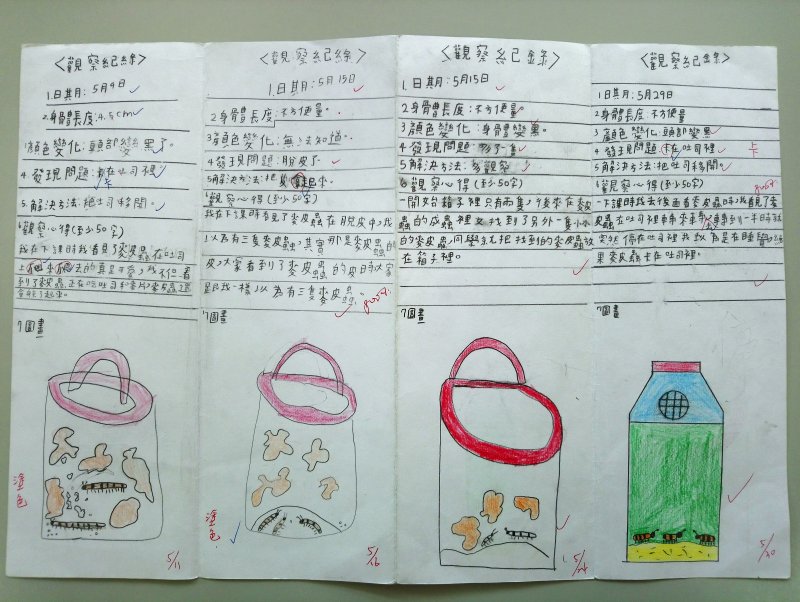 〈觀察紀錄〉
1.日期:5月9日
2.身體長度:4.5cm
3.顏色變化:頭部變黑了。
4.發現問題:卡在吐司裡
5.解決方法:把吐司移開。
6觀察心得(至少50字)
我在下課時我看見了麥皮蟲在吐司
上
7圖畫
塗色
5/11
〈觀察紀錄〉
1.日期:5月15日
2身體長度:不方便量。
3顏色變化:無法知道。
4發現問題:脫皮了
5解決方法:把
6觀察心得(至少50字)
我在下課時看見了麥皮蟲在脫皮中,我
以為有三隻麥皮蟲,其實那是麥皮蟲的
皮,大家看到了麥皮蟲的皮時大家
跟我一樣,以為有三隻麥皮蟲。
good!
7圖畫
塗色
5/16
〈觀察紀錄〉
1.日期:5月15日
2身體長度:不方便量
3顏色變化:身體變黑。
4發現問題:多了一隻
5解決方法:多觀察
6觀察心得(至少50字)
一開始箱子裡只有兩隻,今後來在麥皮
的成蟲裡又找到了另外一隻小小
的麥皮蟲,同學就把找到的麥皮蟲放
在箱子裡。
7圖畫
5/24
〈觀察紀錄〉
1.日期:5月29日
2.身體長度:不方便量
3.顏色變化:頭部變黑
4.發現問題:在吐司裡
卡
5解決方法:把吐司移開
6觀察心得(至少50字)
good!
一下課時我去後面看麥皮蟲時,我看見了麥
皮蟲在吐司裡轉轉來轉轉到一半時就
突然停在吐司裡我以為是在睡覺,結
果麥皮蟲卡在吐司裡。
7圖畫
5/30